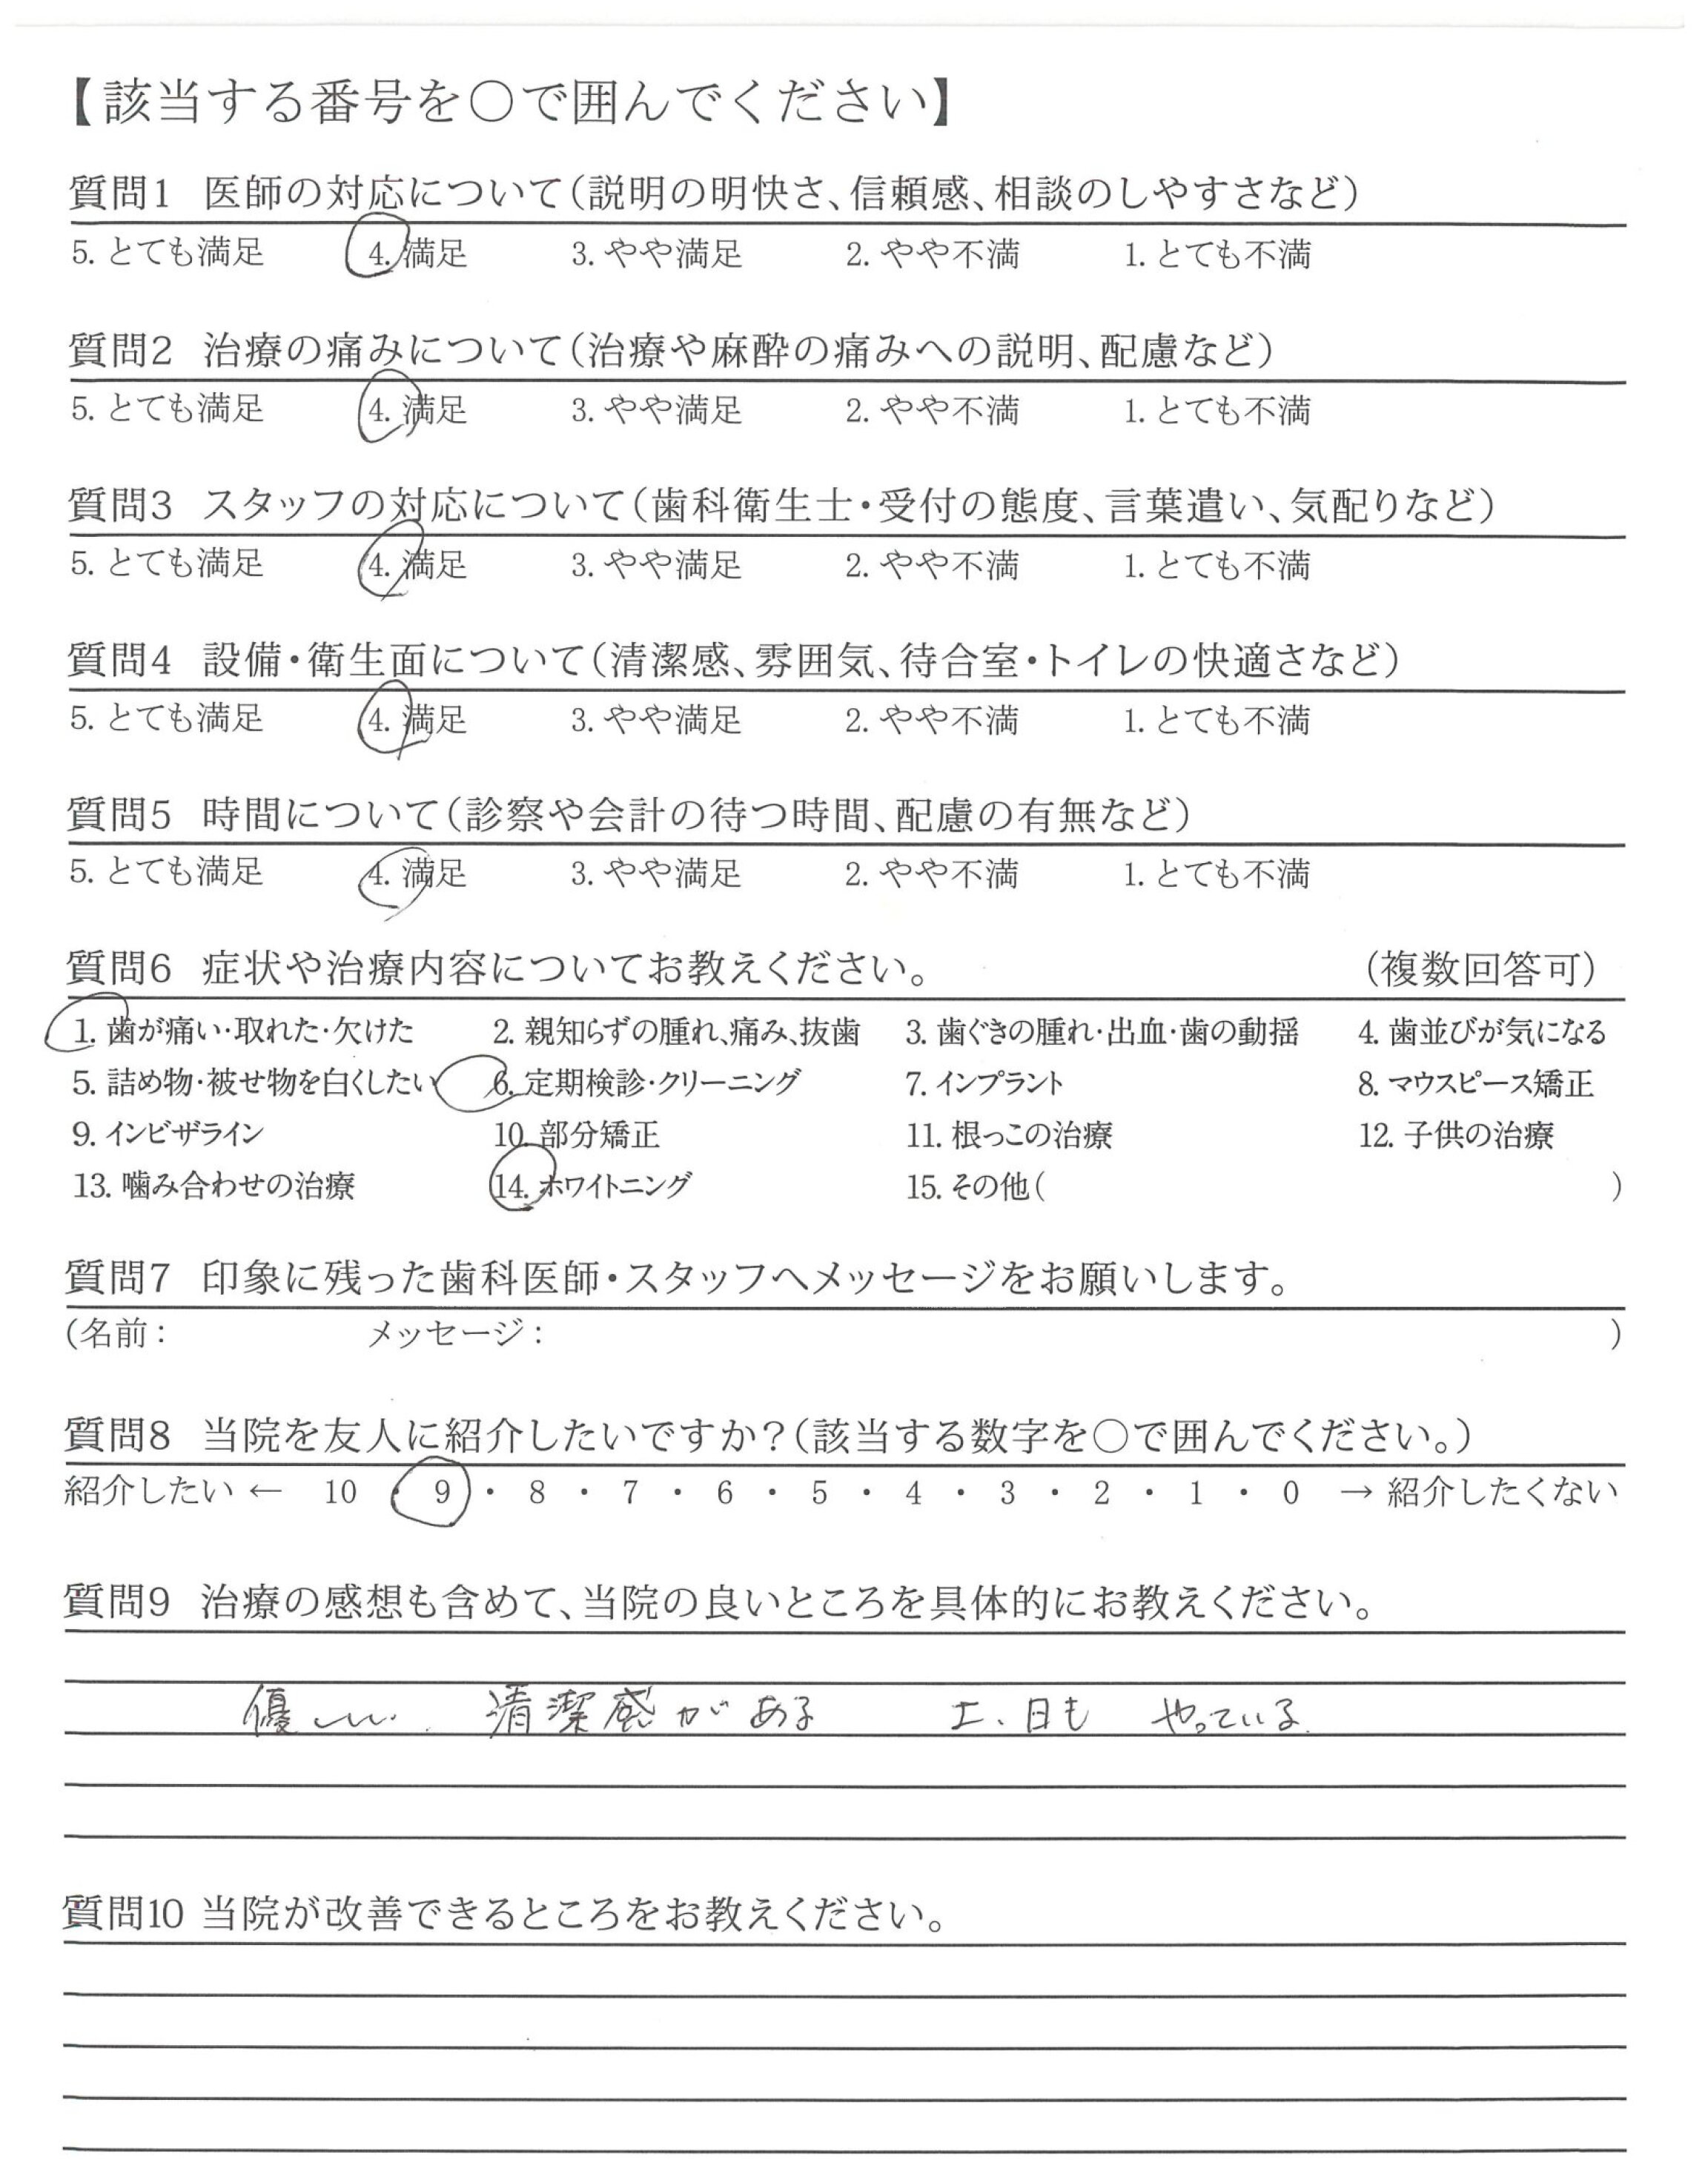 【該当する番号を〇で囲んでください】
質問1 医師の対応について(説明の明快さ、信頼感、相談のしやすさなど)
5. とても満足 4. 満足 3. やや満足 2. やや不満 1. とても不満
質問2 治療の痛みについて(治療や麻酔の痛みへの説明、配慮など)
5. とても満足 4. 満足 3. やや満足 2. やや不満 1. とても不満
質問3 スタッフの対応について(歯科衛生士・受付の態度、言葉遣い、気配りなど)
5. とても満足 4. 満足 3. やや満足 2. やや不満 1. とても不満
質問4 設備・衛生面について(清潔感、雰囲気、待合室・トイレの快適さなど)
5. とても満足 4. 満足 3. やや満足 2. やや不満 1. とても不満
質問5 時間について(診察や会計の待つ時間、配慮の有無など)
5. とても満足 4. 満足 3. やや満足 2. やや不満 1. とても不満
質問6 症状や治療内容についてお教えください。 (複数回答可)
1. 歯が痛い・取れた・欠けた 2. 親知らずの腫れ、痛み、抜歯 3. 歯ぐきの腫れ・出血・歯の動揺 4. 歯並びが気になる
5. 詰め物・被せ物を白くしたい 6. 定期検診・クリーニング 7. インプラント 8. マウスピース矯正
9. インビザライン 10. 部分矯正 11. 根っこの治療 12. 子供の治療
13. 噛み合わせの治療 14. ホワイトニング 15. その他( )
質問7 印象に残った歯科医師・スタッフへメッセージをお願いします。
(名前: メッセージ: )
質問8 当院を友人に紹介したいですか?(該当する数字を〇で囲んでください。)
紹介したい ← 10 ・ 9 ・ 8 ・ 7 ・ 6 ・ 5 ・ 4 ・ 3 ・ 2 ・ 1 ・ 0 → 紹介したくない
質問9 治療の感想も含めて、当院の良いところを具体的にお教えください。
優しい. 清潔感がある 土、日も やっている.
質問10 当院が改善できるところをお教えください。